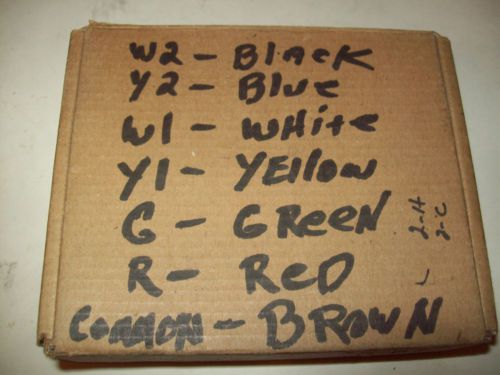 W2 - BlAcK
Y2 - Blue
W1 - WHite
Y1 - YEllow
G - GReeN
R - ReD
Common - BROWN
2-H
2-C